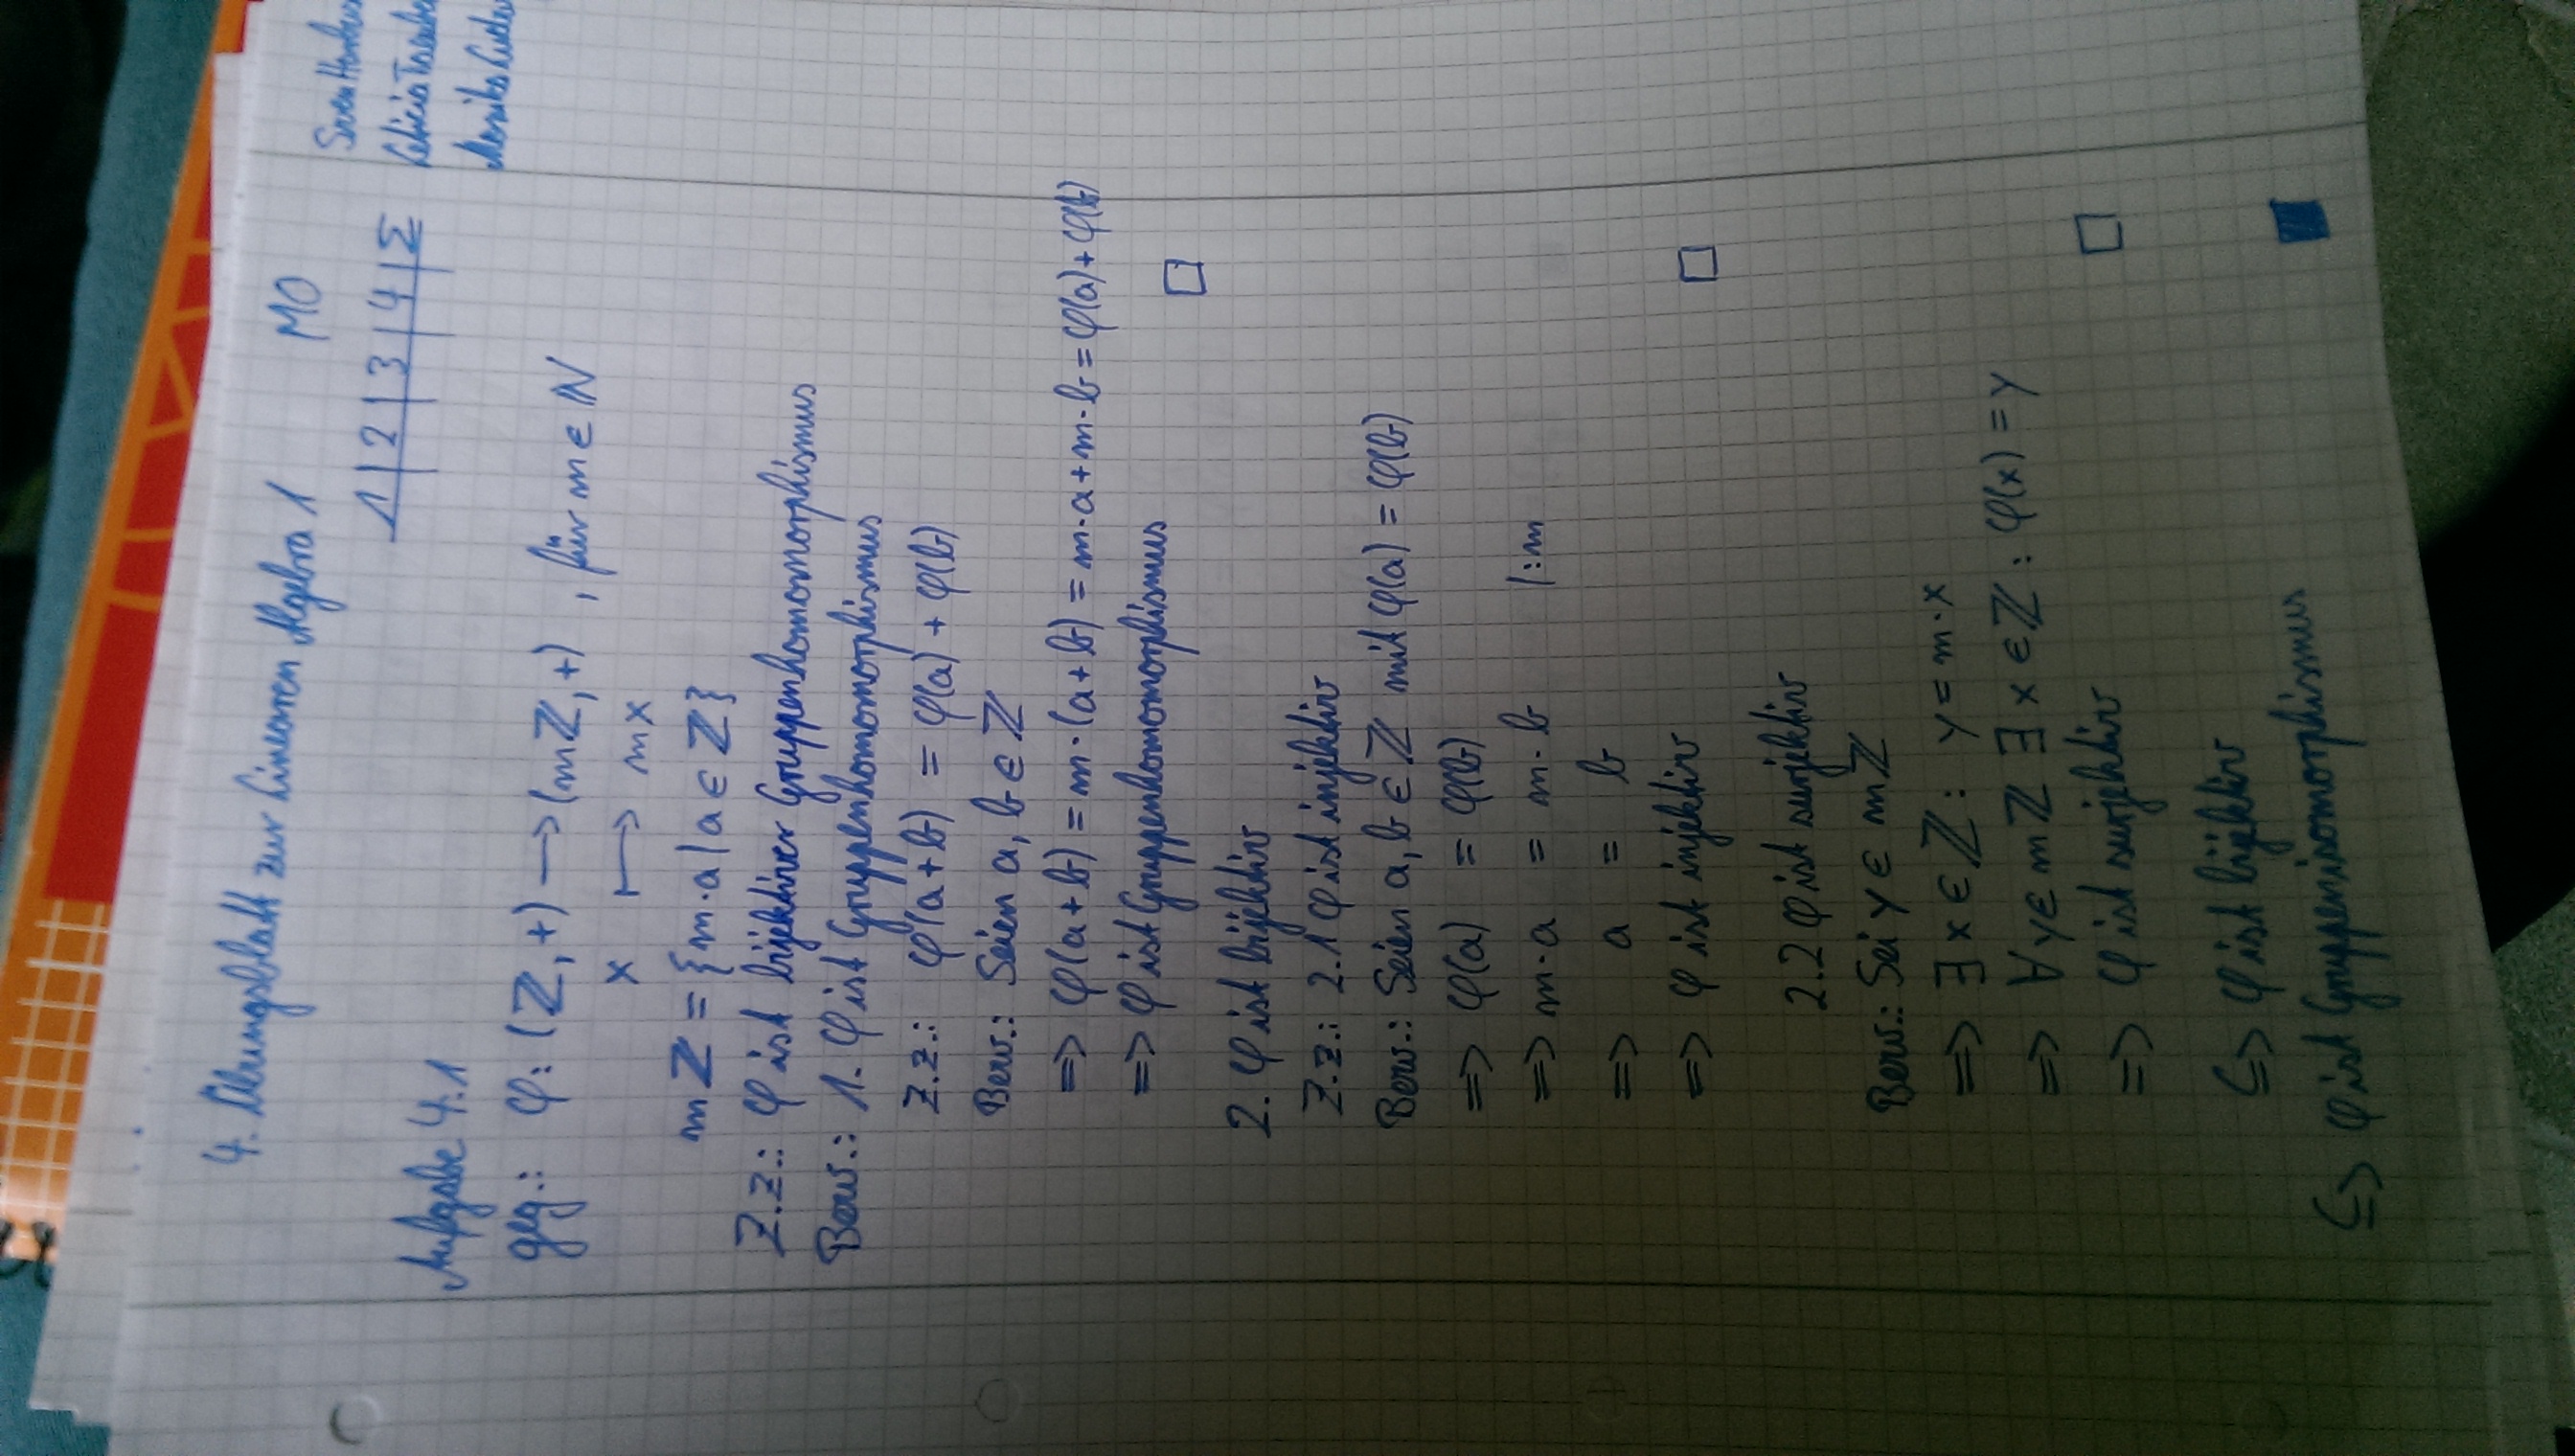 4. Übungsblatt zur Linearen Algebra 1 MO
1 | 2 | 3 | 4 | Σ
Aufgabe 4.1
geg.: φ: (ℤ,+) → (mℤ,+) , für m ∈ ℕ
x ↦ mx
mℤ = {m·a | a ∈ ℤ}
Z.z.: φ ist bijektiver Gruppenhomomorphismus
Bew.: 1. φ ist Gruppenhomomorphismus
Z.z.: φ(a+b) = φ(a) + φ(b)
Bew.: Seien a, b ∈ ℤ
=> φ(a+b) = m·(a+b) = m·a + m·b = φ(a) + φ(b)
=> φ ist Gruppenhomomorphismus □
2. φ ist bijektiv
Z.z.: 2.1 φ ist injektiv
Bew.: Seien a, b ∈ ℤ mit φ(a) = φ(b)
=> φ(a) = φ(b)
=> m·a = m·b |:m
=> a = b
=> φ ist injektiv □
2.2 φ ist surjektiv
Bew.: Sei y ∈ mℤ
=> ∃ x ∈ ℤ: y = m·x
=> ∀ y ∈ mℤ ∃ x ∈ ℤ: φ(x) = y
=> φ ist surjektiv □
<=> φ ist bijektiv
<=> φ ist Gruppenisomorphismus ■